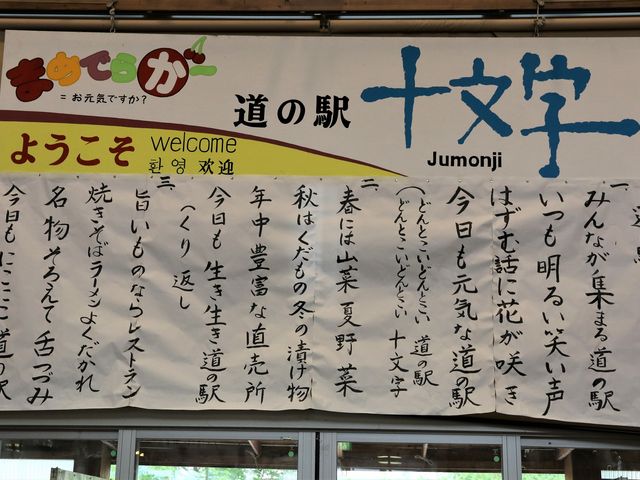 まめでらが〜
=お元気ですか?
道の駅
十文字
Jumonji
ようこそ
welcome
환영 欢迎
一
みんなが集まる道の駅
いつも明るい笑い声
はずむ話に花が咲き
今日も元気な道の駅
(どんとこいどんとこい 道の駅
どんとこいどんとこい 十文字
二
春には山菜夏野菜
秋はくだもの冬の漬け物
年中豊富な直売所
今日も生き生き道の駅
(くり返し
三
旨いものならレストラン
焼きそばラーメンよくだかれ
名物そろえて舌づつみ
今日もにこにこ道の駅